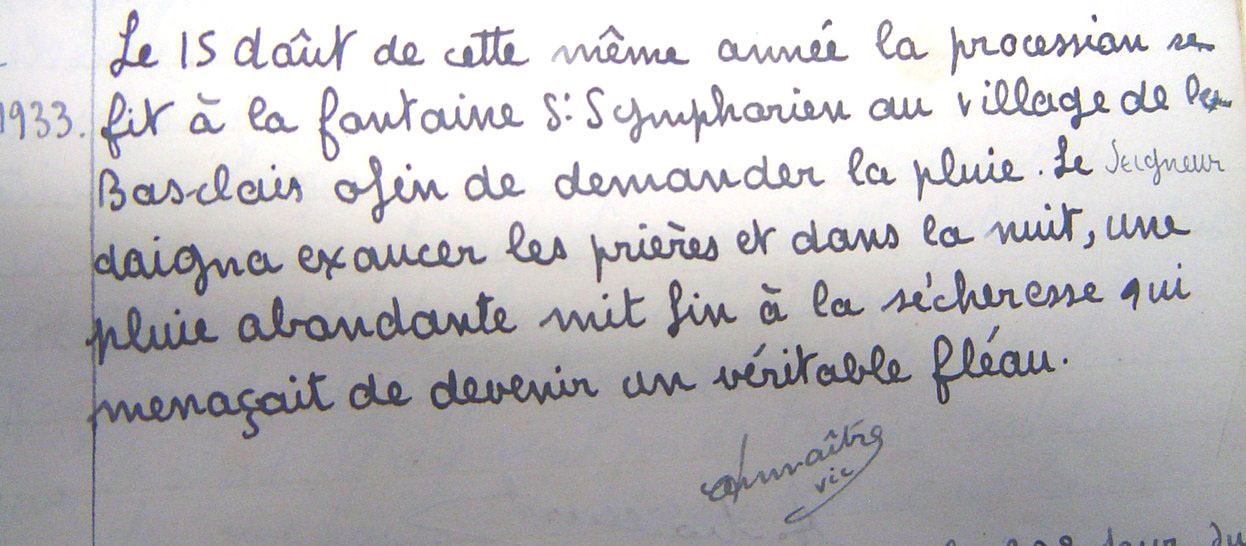 Le 15 d'août de cette même année la procession se
1933. fit à la fontaine St Symphorien au village de
Basclais afin de demander la pluie. Le Seigneur
daigna exaucer les prières et dans la nuit, une
pluie abondante mit fin à la sécheresse qui
menaçait de devenir un véritable fléau.
vic